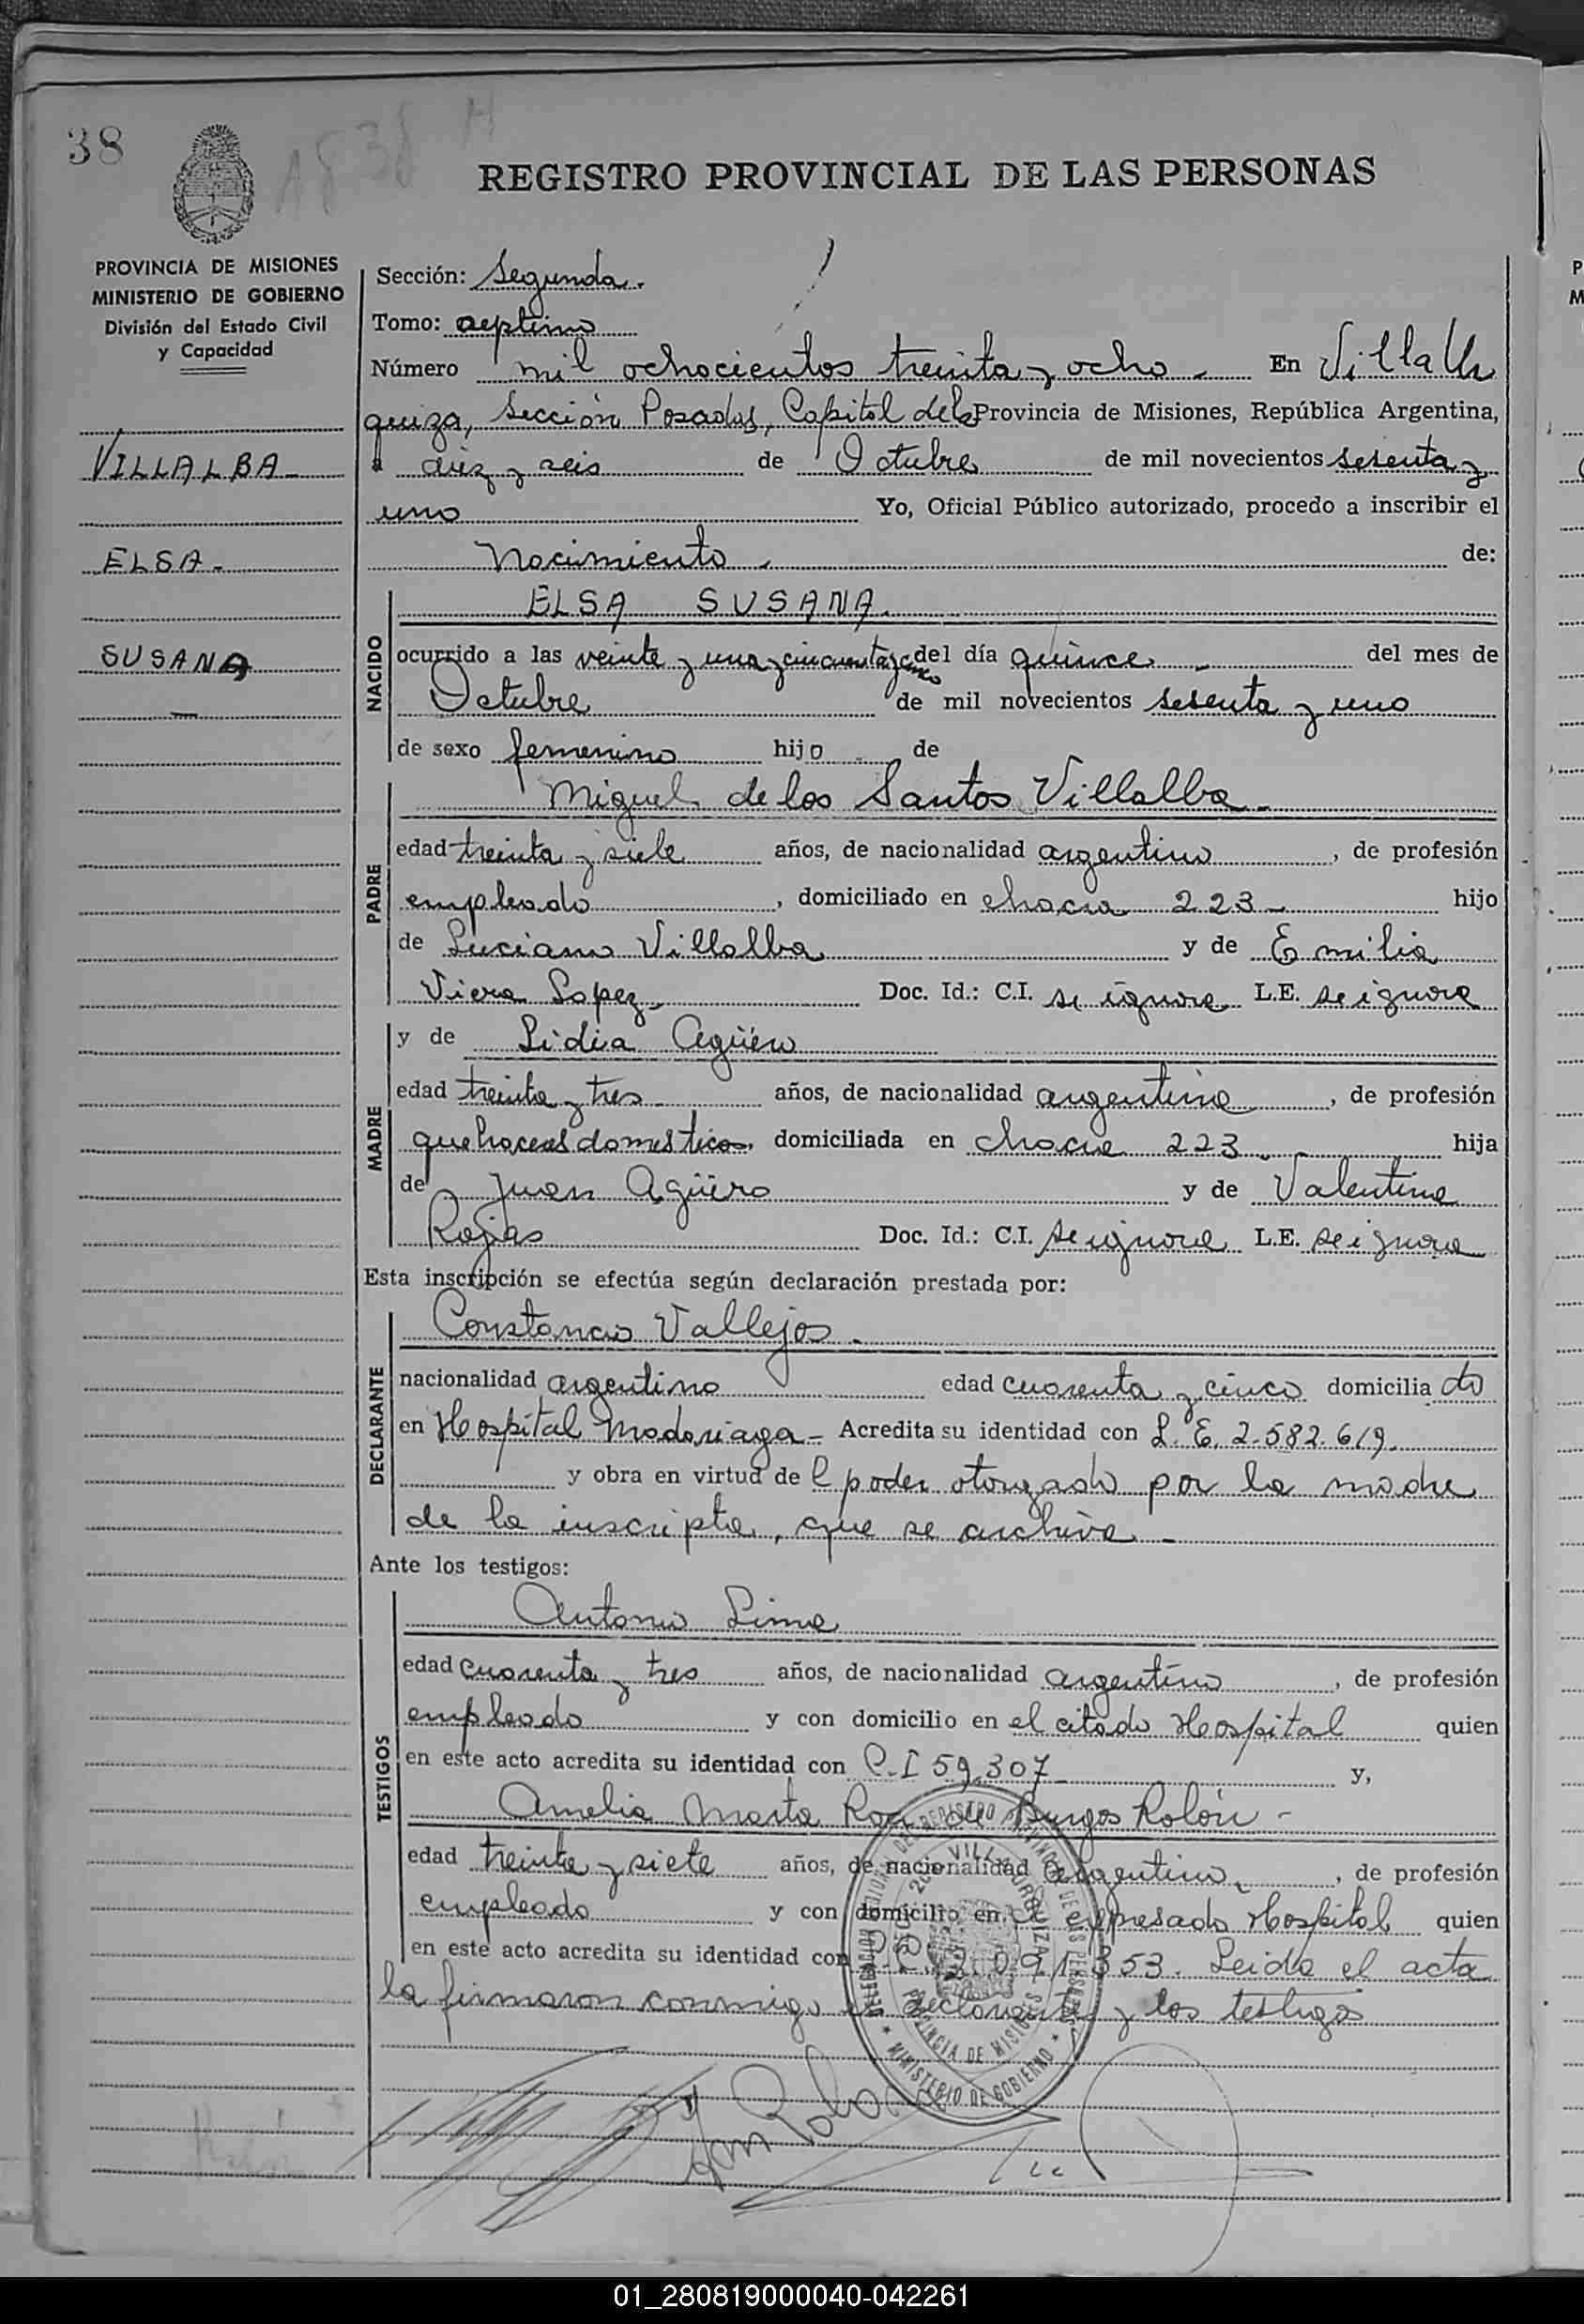 38
A 838 H
REGISTRO PROVINCIAL DE LAS PERSONAS
PROVINCIA DE MISIONES
MINISTERIO DE GOBIERNO
División del Estado Civil
y Capacidad
VILLALBA
ELSA
SUSANA
Sección: Segunda.
Tomo: septimo
Número mil ochocientos treinta y ocho. En Villa Ur
quiza, Sección Posadas, Capital de la Provincia de Misiones, República Argentina,
a diez y seis de Octubre de mil novecientos sesenta y
uno Yo, Oficial Público autorizado, procedo a inscribir el
Nacimiento de:
NACIDO
ELSA SUSANA.
ocurrido a las veinte y una y cincuenta y cinco del día quince - del mes de
Octubre de mil novecientos sesenta y uno
de sexo femenino hijo de
PADRE
Miguel de los Santos Villalba -
edad treinta y siete años, de nacionalidad argentino, de profesión
empleado, domiciliado en chacra 223 - hijo
de Luciano Villalba y de Emilia
Viera Lopez - Doc. Id.: C.I. se ignora L.E. se ignora
MADRE
y de Lidia Agüero
edad treinta y tres años, de nacionalidad argentina, de profesión
quehaceres domesticos, domiciliada en chacra 223. - hija
de Juan Agüero y de Valentina
Rojas Doc. Id.: C.I. se ignora L.E. se ignora
Esta inscripción se efectúa según declaración prestada por:
DECLARANTE
Constancio Vallejos.
nacionalidad argentino edad cuarenta y cinco domiciliado
en Hospital Madariaga - Acredita su identidad con L. E. 2.582.619.
y obra en virtud de l poder otorgado por la madre
de la inscripta, que se archiva -
Ante los testigos:
TESTIGOS
Antonio Lima
edad cuarenta y tres años, de nacionalidad argentino, de profesión
empleado y con domicilio en el citado Hospital quien
en este acto acredita su identidad con C.I 59.307 y,
Amelia Marta de Burgos Rolón -
edad treinta y siete años, de nacionalidad argentina, de profesión
empleada y con domicilio en el expresado Hospital quien
en este acto acredita su identidad con 2.091.353. Leida el acta
la firmaron conmigo el declarante y los testigos
DELEGACION REGISTRO PROVINCIAL DE LAS PERSONAS
VILLA URQUIZA
PROVINCIA DE MISIONES
MINISTERIO DE GOBIERNO
01_280819000040-042261